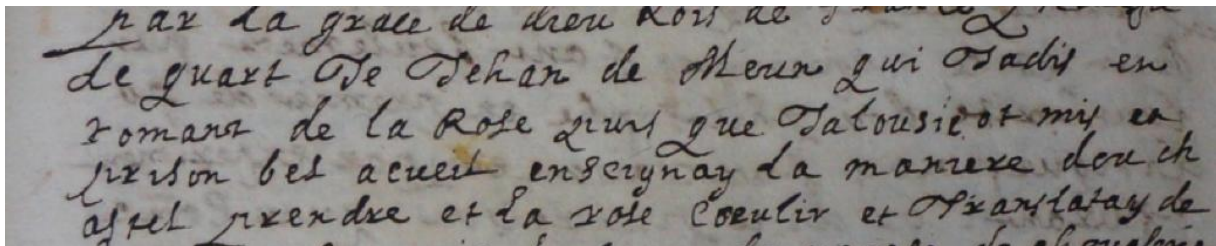 par la grace de dieu Rois de
de quart Je Jehan de Meun qui Jadis en
romant de la Rose puis que Jalousie ot mis en
prison bel acueil enseignay la maniere dou ch
astel prendre et la rose Coeulir et Translatay de